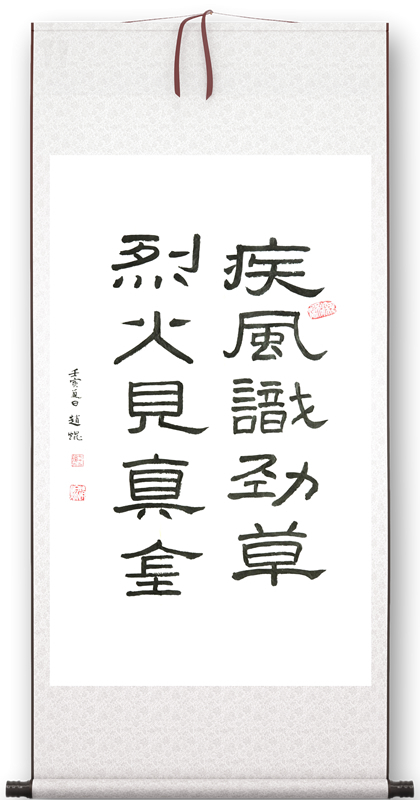 疾風識勁草
烈火見真金
壬寅夏日 趙焜